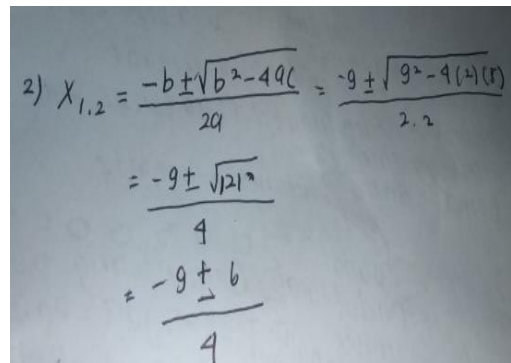 2) X₁.₂ = (-b ± √(b² - 4ac))/2a = (-9 ± √(9² - 4(2)(5)))/2.2
= (-9 ± √121)/4
= (-9 ± 6)/4